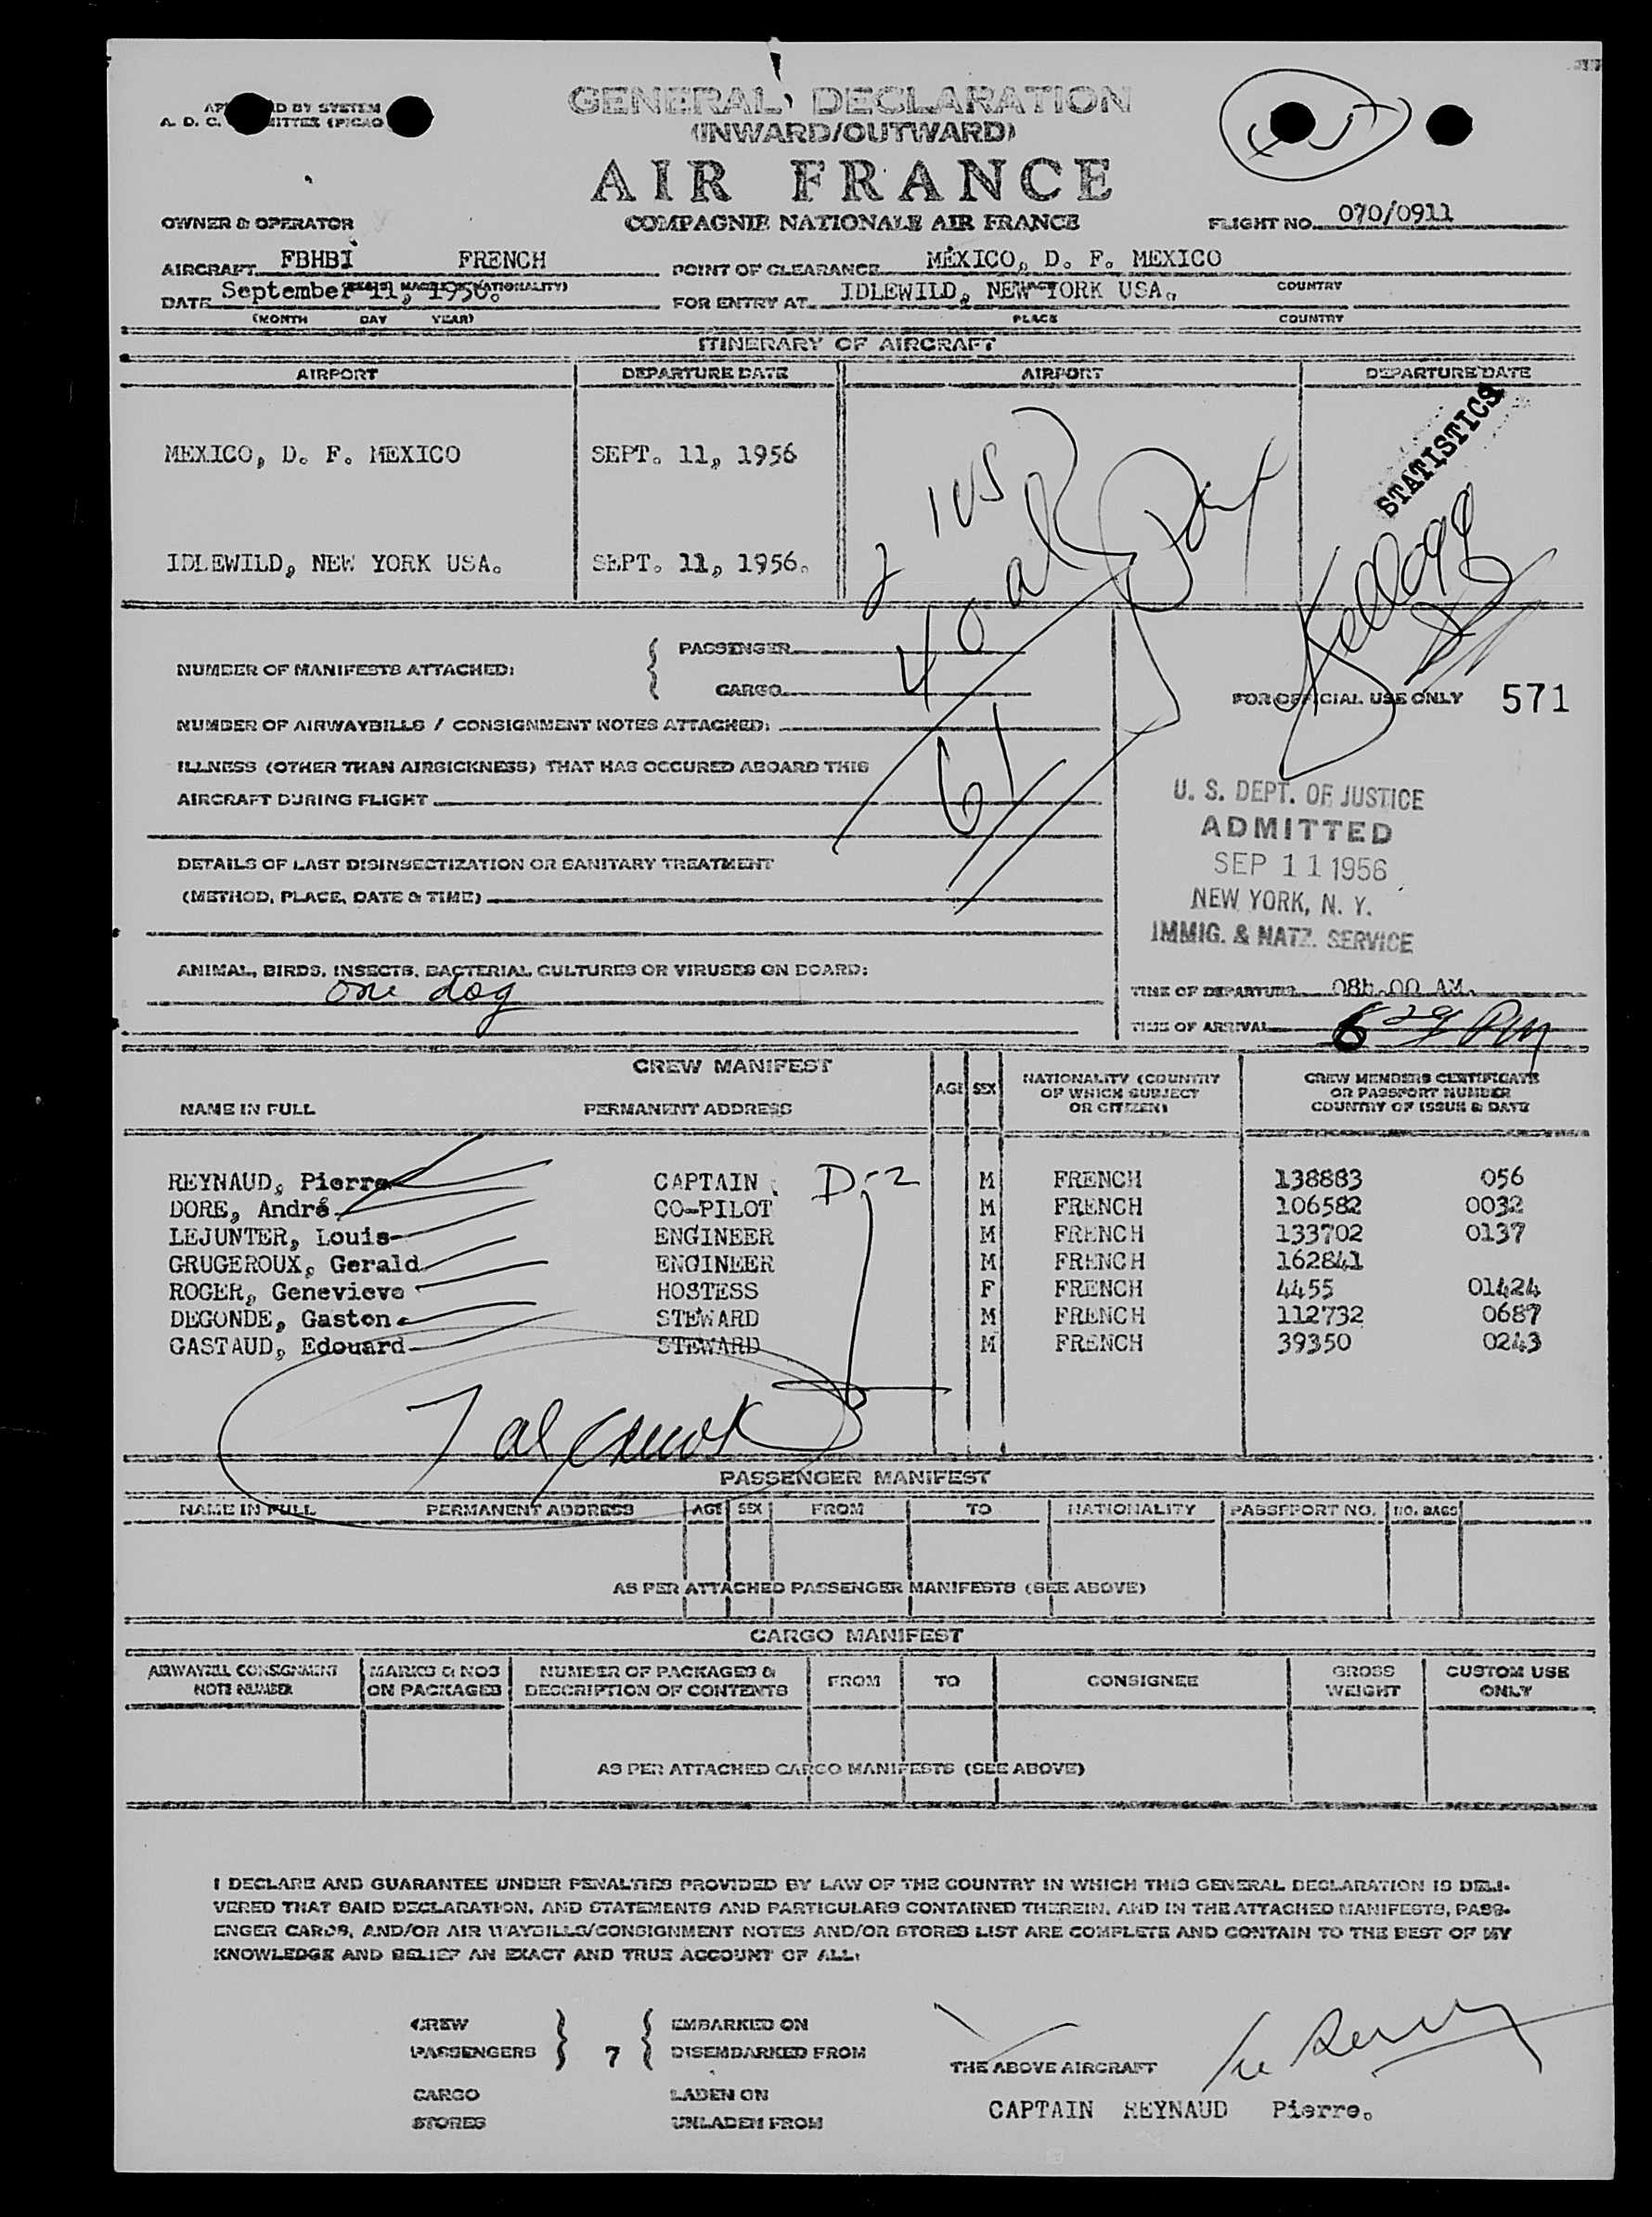 GENERAL DECLARATION
(INWARD/OUTWARD)
AIR FRANCE
COMPAGNIE NATIONALE AIR FRANCE
OWNER & OPERATOR
FLIGHT NO. 070/0911
AIRCRAFT FBHBI FRENCH
POINT OF CLEARANCE MEXICO, D. F. MEXICO
COUNTRY
DATE September 11, 1956.
(MONTH DAY YEAR)
FOR ENTRY AT IDLEWILD, NEW YORK USA.
PLACE COUNTRY
ITINERARY OF AIRCRAFT
AIRPORT DEPARTURE DATE AIRPORT DEPARTURE DATE
STATISTICS
MEXICO, D. F. MEXICO SEPT. 11, 1956
2 1 US
40 al
IDLEWILD, NEW YORK USA. SEPT. 11, 1956.
Kellogg
NUMBER OF MANIFESTS ATTACHED:
PASSENGER
CARGO
FOR OFFICIAL USE ONLY 571
61
NUMBER OF AIRWAYBILLS / CONSIGNMENT NOTES ATTACHED:
ILLNESS (OTHER THAN AIRSICKNESS) THAT HAS OCCURED ABOARD THIS
AIRCRAFT DURING FLIGHT
U. S. DEPT. OF JUSTICE
ADMITTED
SEP 11 1956
NEW YORK, N. Y.
IMMIG. & NATZ. SERVICE
DETAILS OF LAST DISINSECTIZATION OR SANITARY TREATMENT
(METHOD, PLACE, DATE & TIME)
ANIMAL, BIRDS, INSECTS, BACTERIAL CULTURES OR VIRUSES ON BOARD:
one dog
TIME OF DEPARTURE 08h.00 AM.
TIME OF ARRIVAL 6 29 PM
CREW MANIFEST
NAME IN FULL PERMANENT ADDRESS AGE SEX
NATIONALITY (COUNTRY
OF WHICH SUBJECT
OR CITIZEN)
CREW MEMBERS CERTIFICATE
OR PASSPORT NUMBER
COUNTRY OF ISSUE & DATE
REYNAUD, Pierre CAPTAIN D-2 M FRENCH 138883 056
DORE, André CO-PILOT M FRENCH 106582 0032
LEJUNTER, Louis ENGINEER M FRENCH 133702 0137
GRUGEROUX, Gerald ENGINEER M FRENCH 162841
ROGER, Genevieve HOSTESS F FRENCH 4455 01424
DEGONDE, Gaston STEWARD M FRENCH 112732 0687
GASTAUD, Edouard STEWARD M FRENCH 39350 0243
7 al crew
PASSENGER MANIFEST
NAME IN FULL PERMANENT ADDRESS AGE SEX FROM TO NATIONALITY PASSPPORT NO. NO. BAGS
AS PER ATTACHED PASSENGER MANIFESTS (SEE ABOVE)
CARGO MANIFEST
AIRWAYBILL CONSIGNMENT
NOTE NUMBER
MARKS & NOS
ON PACKAGES
NUMBER OF PACKAGES &
DESCRIPTION OF CONTENTS
FROM TO CONSIGNEE
GROSS
WEIGHT
CUSTOM USE
ONLY
AS PER ATTACHED CARGO MANIFESTS (SEE ABOVE)
I DECLARE AND GUARANTEE UNDER PENALTIES PROVIDED BY LAW OF THE COUNTRY IN WHICH THIS GENERAL DECLARATION IS DELI-
VERED THAT SAID DECLARATION, AND STATEMENTS AND PARTICULARS CONTAINED THEREIN, AND IN THE ATTACHED MANIFESTS, PASS-
ENGER CARDS, AND/OR AIR WAYBILLS/CONSIGNMENT NOTES AND/OR STORES LIST ARE COMPLETE AND CONTAIN TO THE BEST OF MY
KNOWLEDGE AND BELIEF AN EXACT AND TRUE ACCOUNT OF ALL:
CREW
PASSENGERS
7
EMBARKED ON
DISEMBARKED FROM
THE ABOVE AIRCRAFT
CARGO
STORES
LADEN ON
UNLADEN FROM
CAPTAIN REYNAUD Pierre.